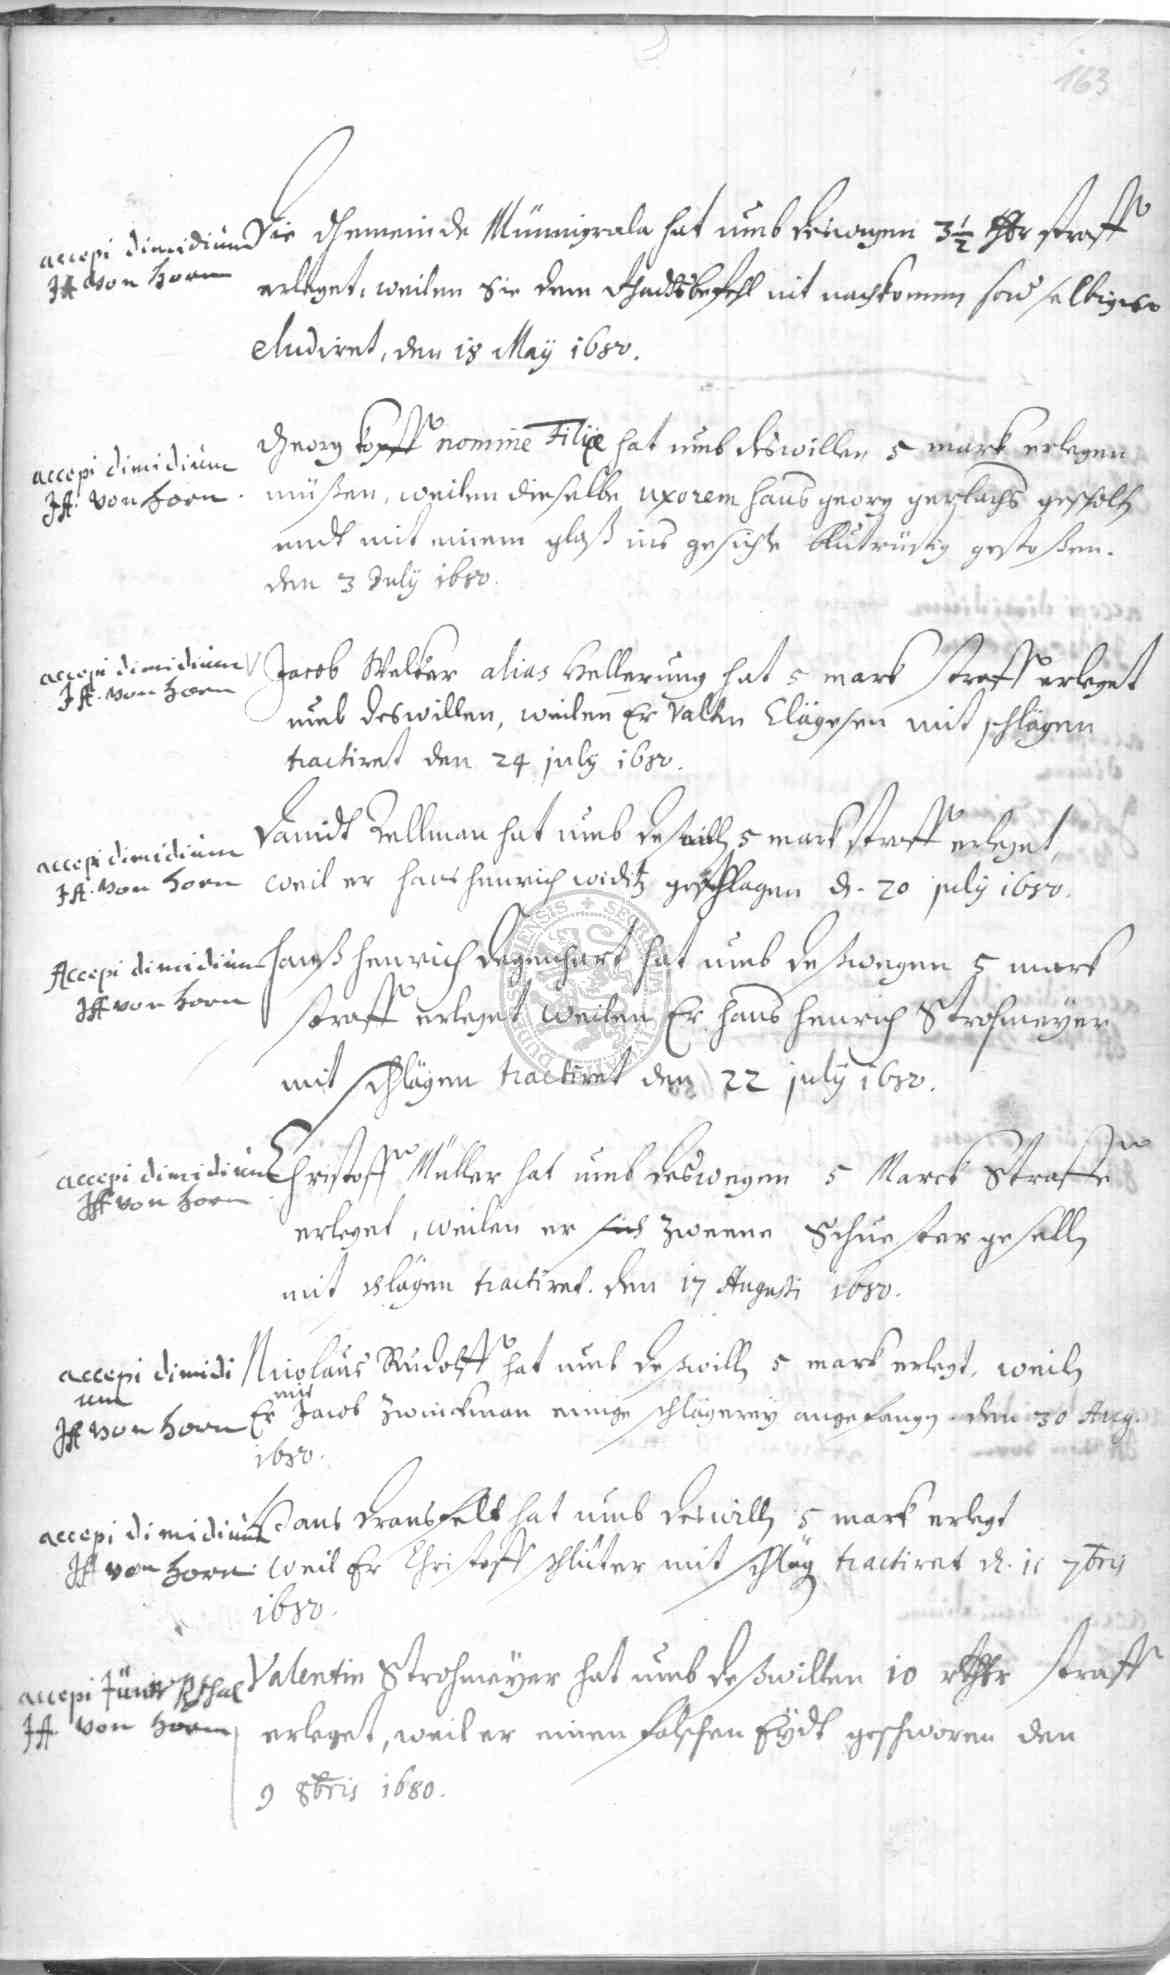 163
accepi dimidium
JH von Horn
Die Gemeinde Münnigrala hat umb deswegen 3½ thlr straff
erleget, weilen Sie dem nit nachkommen selbiges
eludiret, den 18 Maÿ 1680.
accepi dimidium
JH. von Horn.
Georg Kopff nomine Filiæ hat umb deswillen 5 mark erlegen
müßen, weilen dieselbe uxorem Hans Georg Gerlachs gescholten
undt mit einem glaß ins gesichte blutrüstig gestoßen.
den 3 Julÿ 1680.
accepi dimidium
JH. von Horn
Jacob Walter alias Hellerung hat 5 mark straff erleget
umb deswillen, weilen Er Valtin Clägesen mit schlägen
tractiret den 24 julÿ 1680.
accepi dimidium
JH. von Horn
Davidt Zellman hat umb deßwilln 5 mark straff erleget,
weil er Hans Henrich Widitz geschlagen d. 20 julÿ 1680.
Accepi dimidium
JH von Horn
Hanß Henrich Degenhart hat umb deßwegen 5 mark
straff erleget weilen Er Hans Henrich Strohmeÿer
mit schlägen tractiret den 22 julÿ 1680.
accepi dimidium
JH von Horn
Christoff Müller hat umb deswegen 5 Marck Straffe
erleget, weilen er zweene Schuestergeselln
mit slägen tractiret. den 17 Augusti 1680.
accepi dimidi
um
JH von Horn
Nicolaus Rudolff hat umb deßwilln 5 mark erlegt, weiln
Er mit Jacob Zwinckman einige schlägereÿ angefangen den 30 Aug.
1680.
accepi dimidium
JH von Horn
Hans Dransfelt hat umb deswilln 5 mark erlegt
weil Er Christoff Schlüter mit schläg tractiret d. 11 7bris
1680.
accepi fünff Rthal
JH von Horn
Valentin Strohmeÿer hat umb deßwillen 10 rthlr straff
erleget, weil er einen falschen Eÿdt geschworen den
9 8bris 1680.